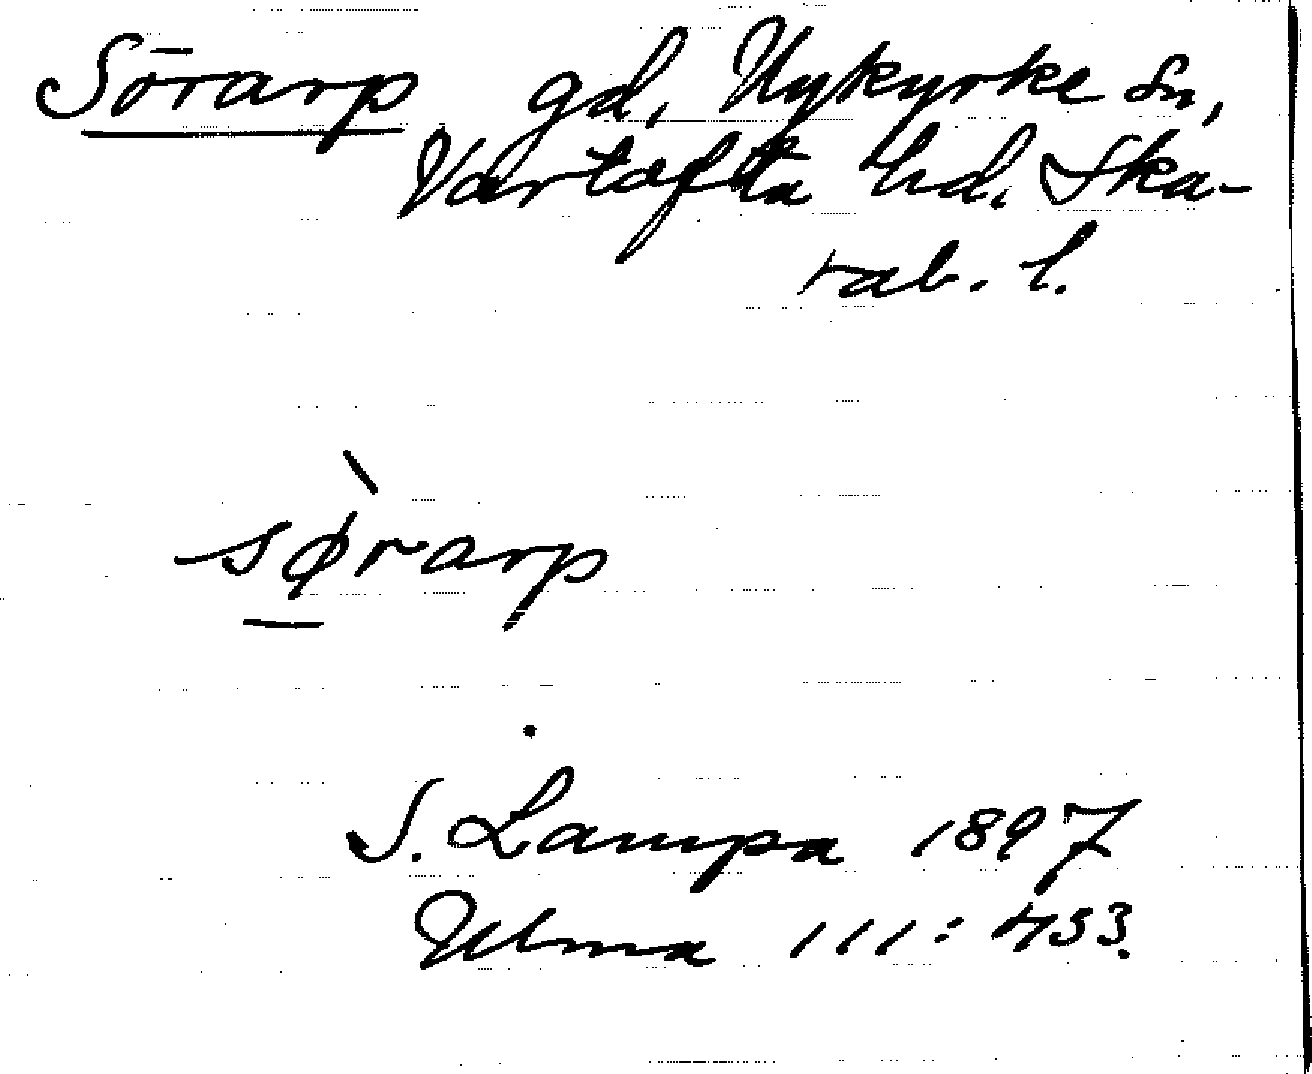 Sörarp gd, Nykyrke sn,
Vartofta hd. Ska-
rab. l.
sø̀rarp
S. Lampa 1897
Ulma 111: 453.